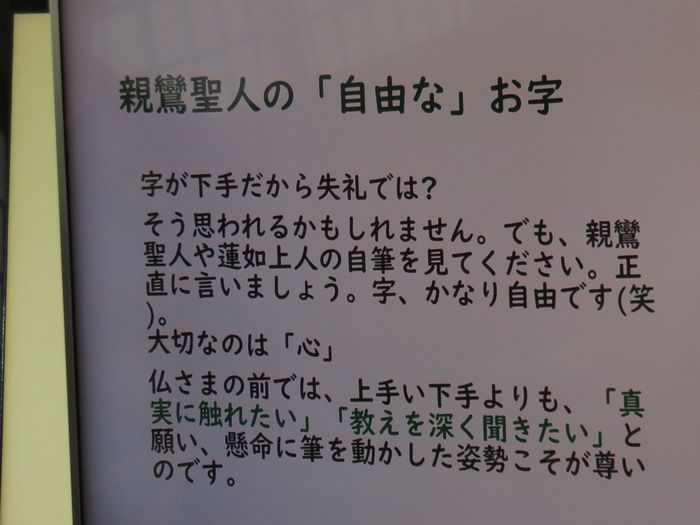 親鸞聖人の「自由な」お字
字が下手だから失礼では?
そう思われるかもしれません。でも、親鸞
聖人や蓮如上人の自筆を見てください。正
直に言いましょう。字、かなり自由です(笑
)。
大切なのは「心」
仏さまの前では、上手い下手よりも、「真
実に触れたい」「教えを深く聞きたい」と
願い、懸命に筆を動かした姿勢こそが尊い
のです。